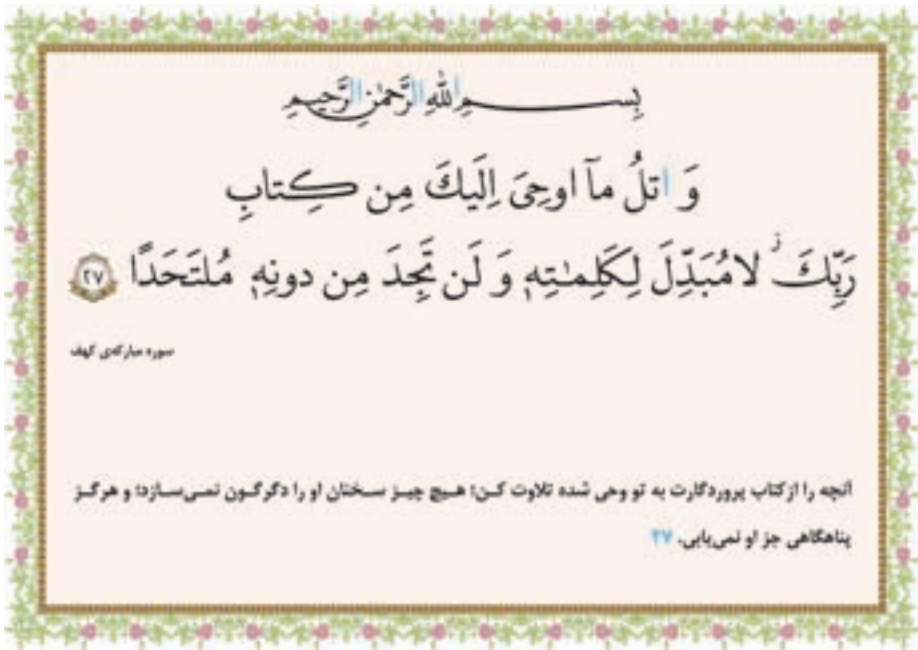 بِسمِ اللّٰهِ الرَّحمٰنِ الرَّحیمِ
وَ اتلُ مآ اوحِیَ اِلَیكَ مِن كِتابِ
رَبِّكَ ۖ لامُبَدِّلَ لِكَلِمٰتِهٖ وَ لَن تَجِدَ مِن دونِهٖ مُلتَحَدًا ﴿٢٧﴾
سوره مبارکه‌ی کهف
آنچه را ازکتاب پروردگارت به تو وحی شده تلاوت کـن؛ هـیچ چیـز سـخنان او را دگرگـون نمـی‌سـازد؛ و هرگـز
پناهگاهی جز او نمی‌یابی. ۲۷